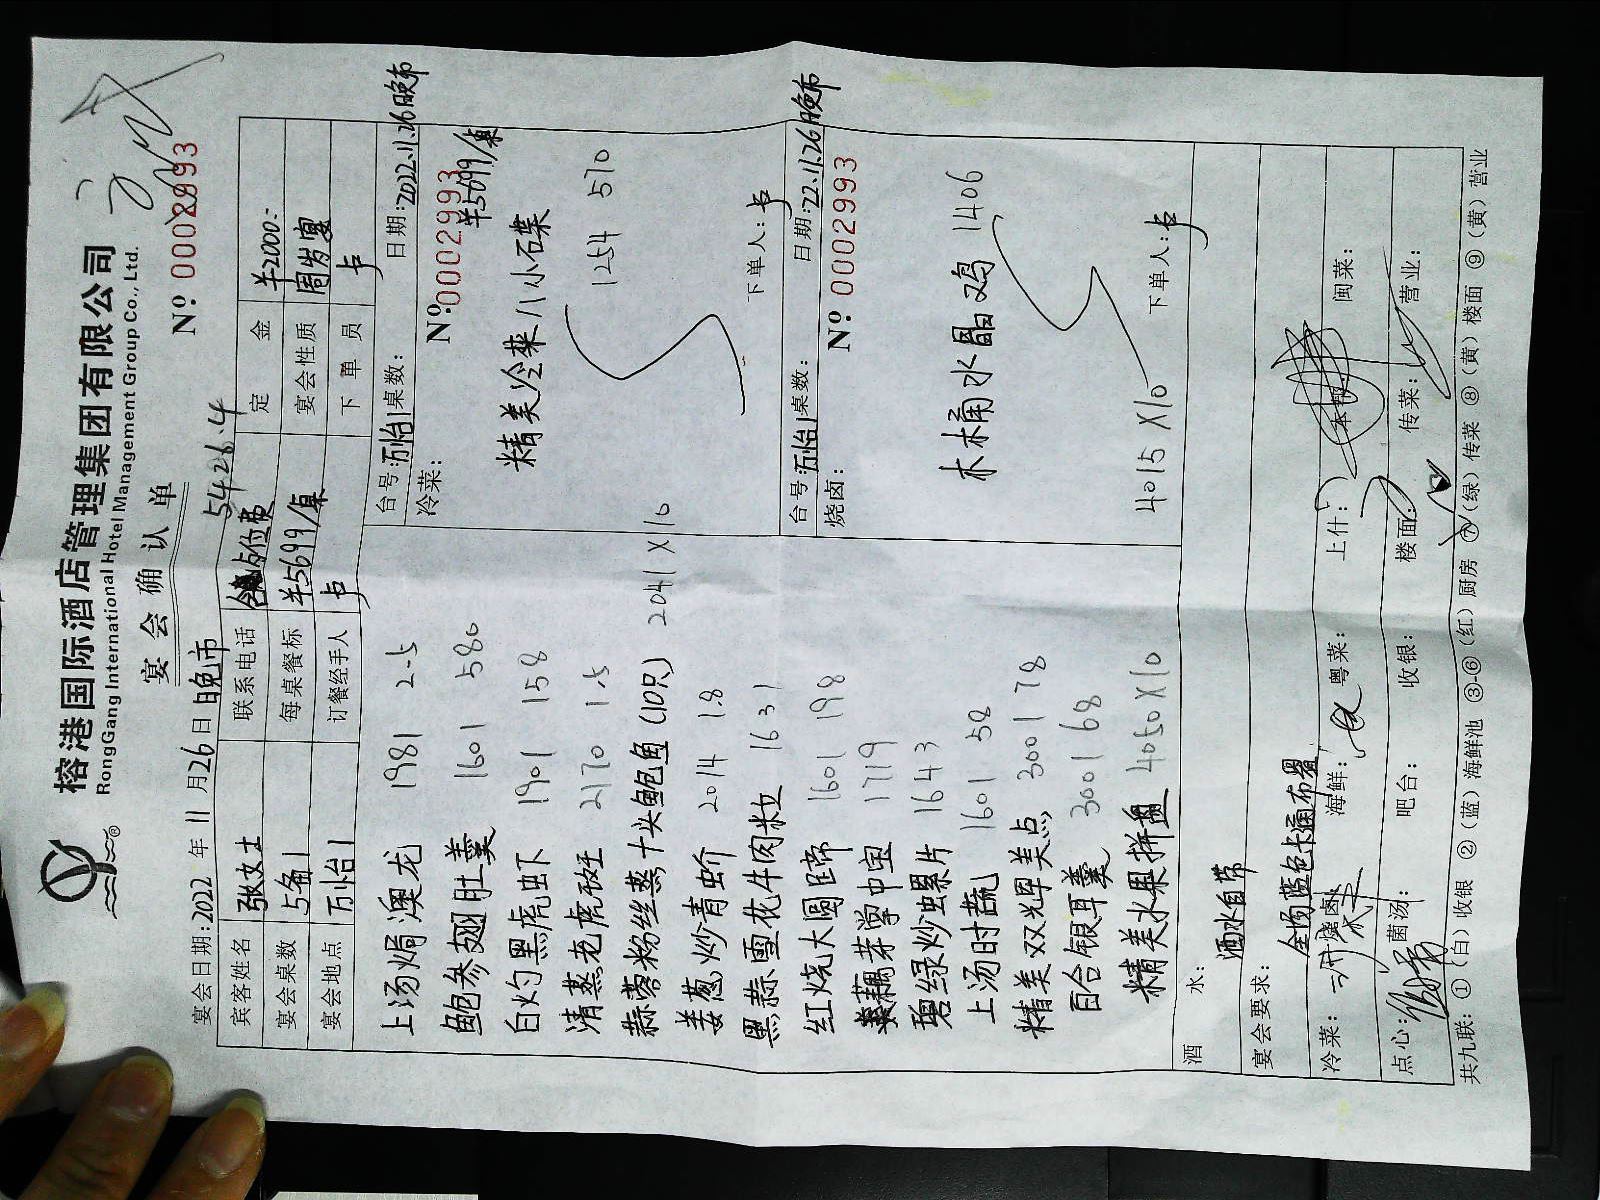 榕港国际酒店管理集团有限公司
RongGang International Hotel Management Group Co., Ltd.
宴会确认单
№ 0002993
5426.4
宴会日期:2022年11月26日晚市
宾客姓名 张女士 联系电话 定金 ¥2000-
宴会桌数 5备1 每桌餐标 ¥5699/桌 宴会性质 周岁宴
宴会地点 万怡1 订餐经手人 卡 下单员 卡
上汤焗澳龙 1981 2.5
鲍参翅肚羹 1601 580
白灼黑虎虾 1901 158
清蒸老虎斑 2170 1.5
蒜蓉粉丝蒸十头鲍鱼(10只) 2041X10
姜葱炒青虫介 2014 1.8
黑蒜雪花牛肉粒 1631
红烧大圆蹄 1601 198
藕芽掌中宝 1719
碧绿炒虫螺片 1643
上汤时蔬 1601 58
精美双辉美点 3001 78
百合银耳羹 3001 68
精美水果拼盘 4050X10
台号:万怡1 桌数: 日期:2022.11.26晚市
冷菜: №0002993
¥5699/桌
精美冷菜八小石菜
1254 570
下单人:卡
台号:万怡1 桌数: 日期:22.11.26晚市
烧卤: №0002993
木桶水晶鸡 1406
4015X10
下单人:卡
酒水: 酒水自带
宴会要求: 全场蓝色卡通布置
冷菜: 烧卤: 海鲜: 粤菜: 上什: 本帮: 闽菜:
点心: 菌汤: 吧台: 收银: 楼面: 传菜: 营业:
共九联:①(白)收银 ②(蓝)海鲜池 ③-⑥(红)厨房 ⑦(绿)传菜 ⑧(黄)楼面 ⑨(黄)营业